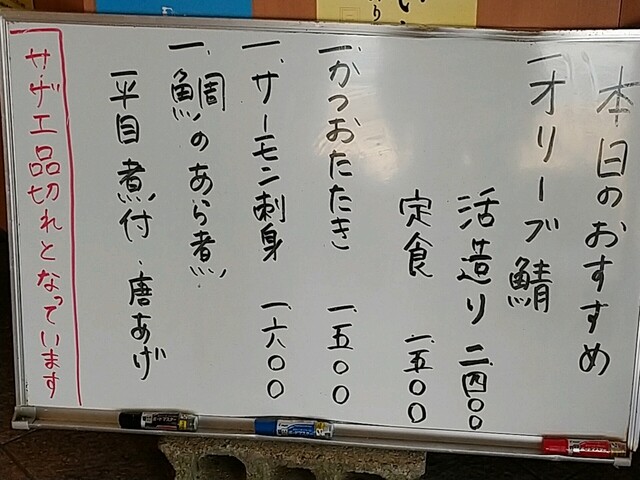 本日のおすすめ
一、オリーブ鯖
活造り 二、四〇〇
定食 一、五〇〇
一、かつおたたき 一、五〇〇
一、サーモン刺身 一、六〇〇
一、鯛のあら煮
平目煮付・唐あげ
サザエ品切れとなっています